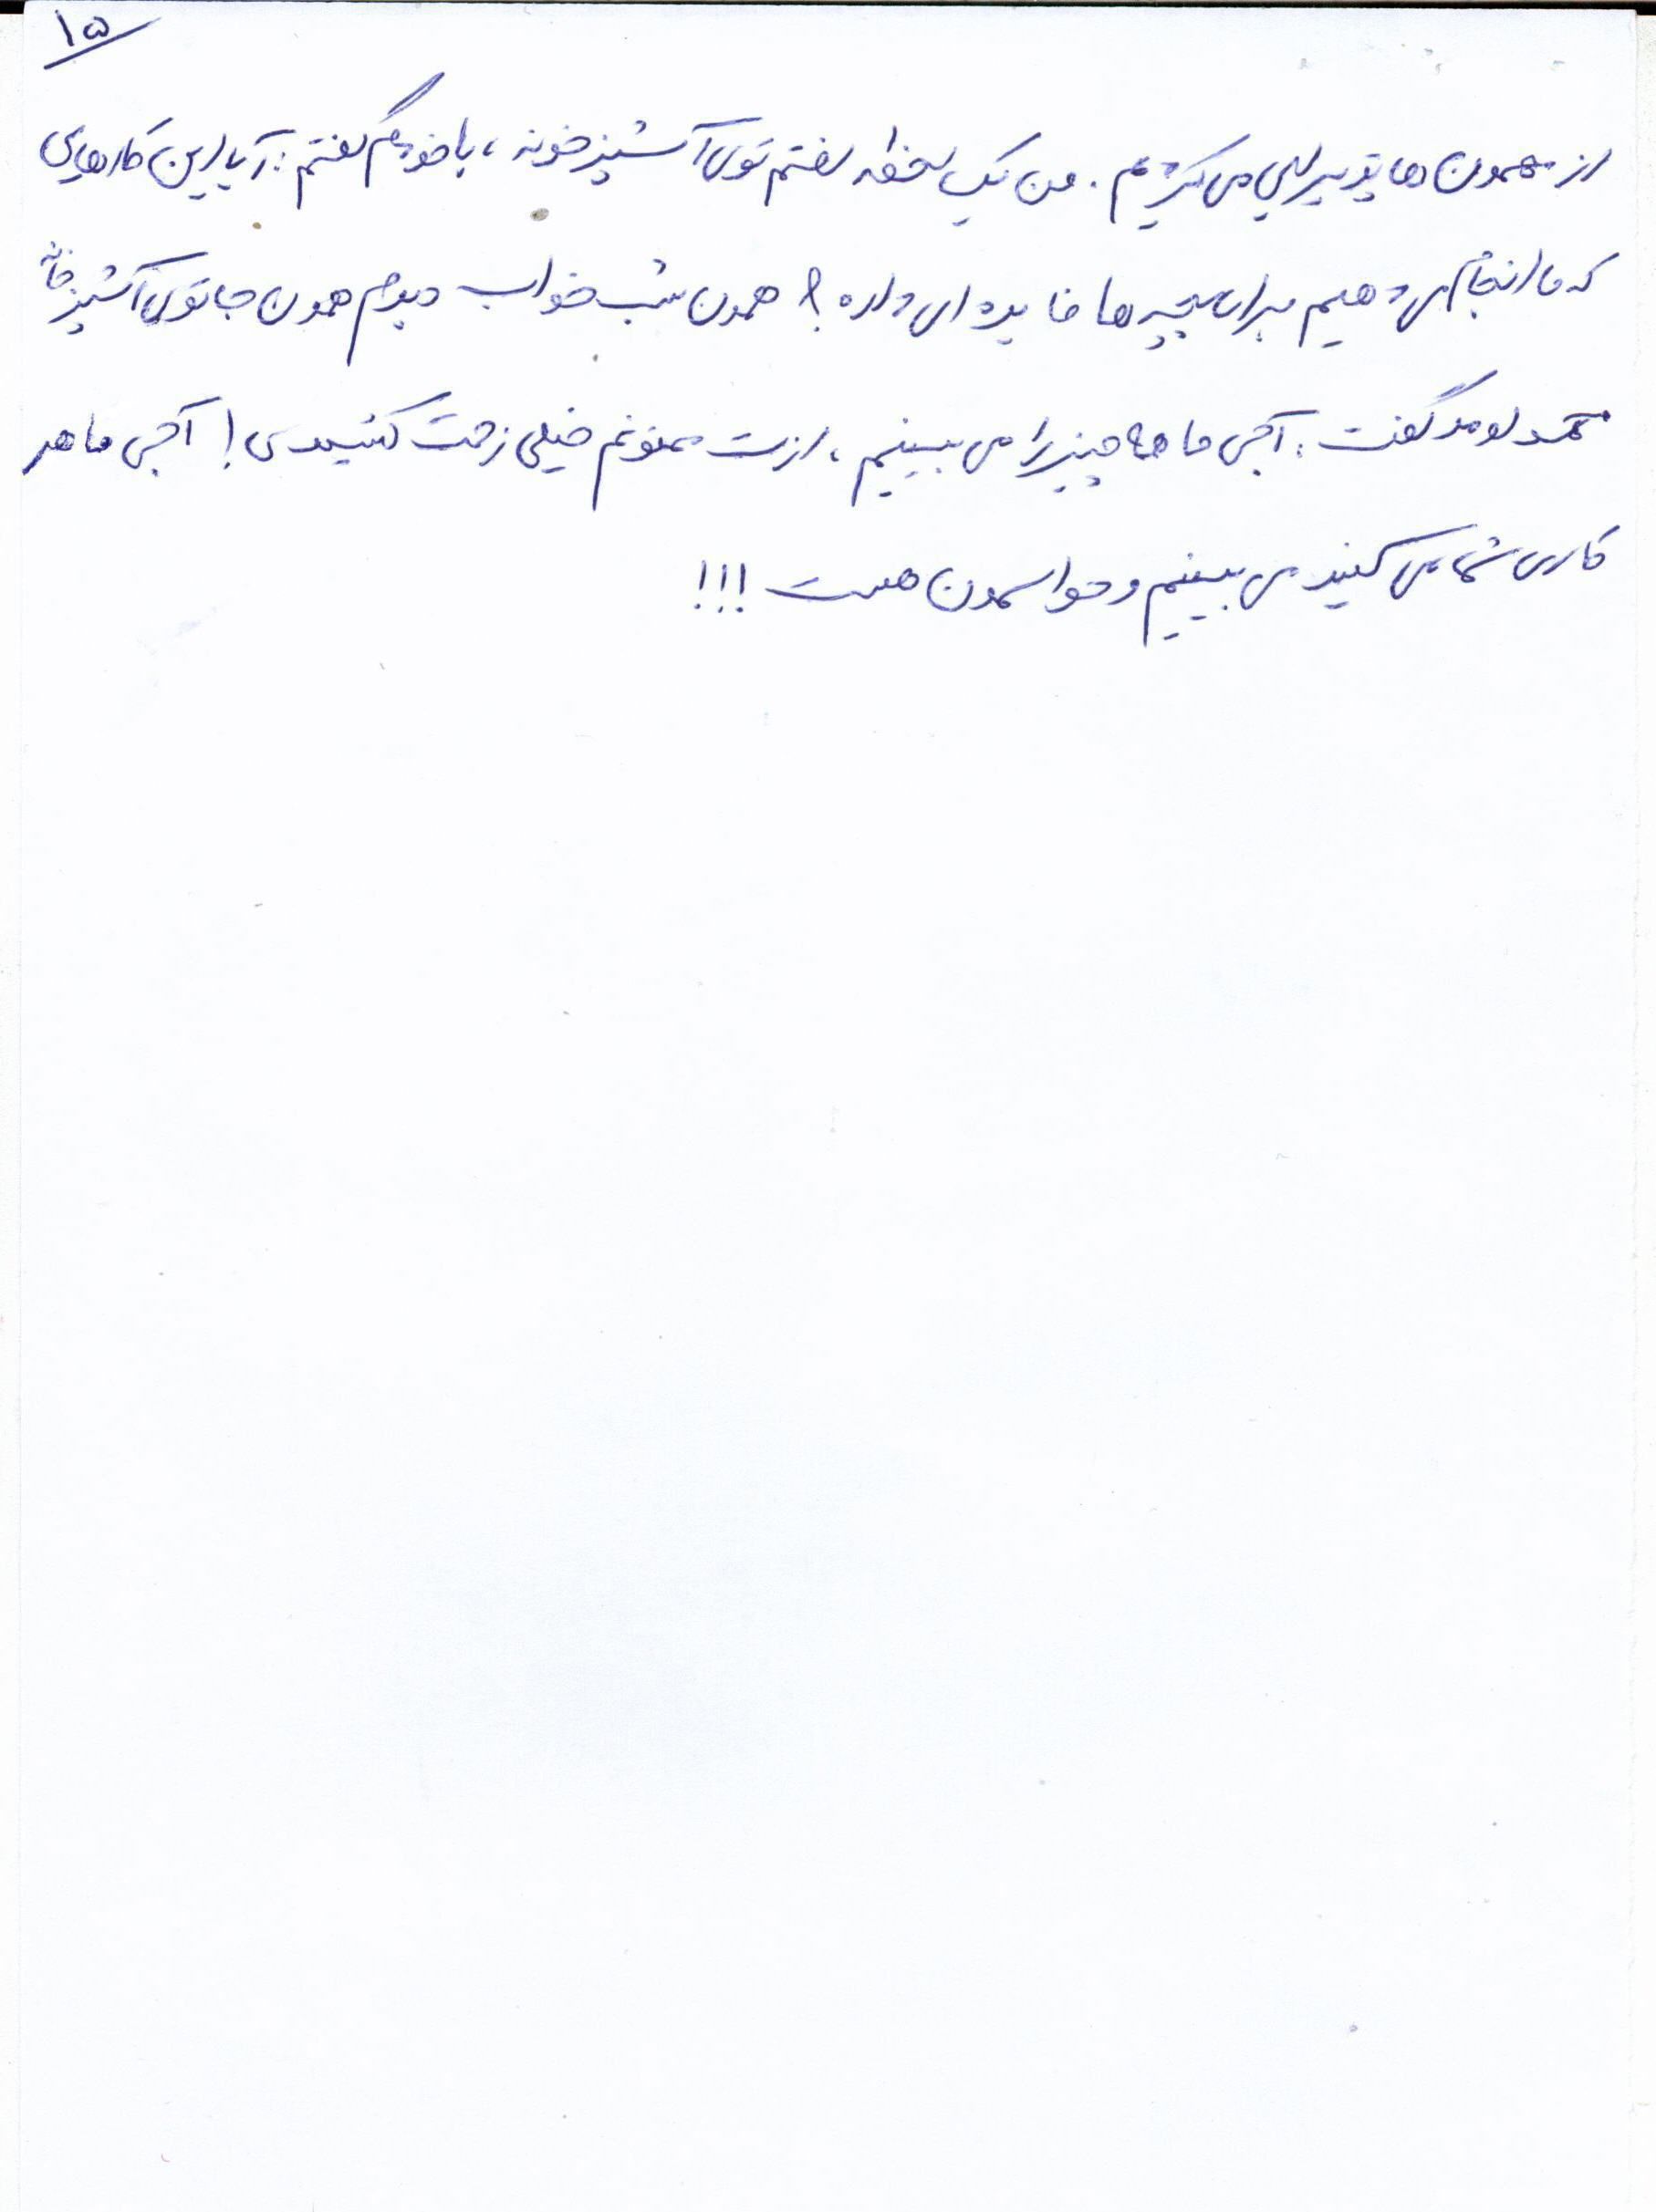 ۱۵
از مهمون ها پذیرایی می کردیم. من یک لحظه رفتم توی آشپزخونه، با خودم گفتم: آیا این کارهای
که ما انجام می دهیم برای بچه ها فایده ای داره؟ همون شب خواب دیدم همون جا توی آشپزخانه
محمد اومد گفت: آجی ما همه چیز را می بینیم، ازت ممنونم خیلی زحمت کشیدی! آجی ما هر
کاری شما می کنید می بینیم و حواسمون هست!!!